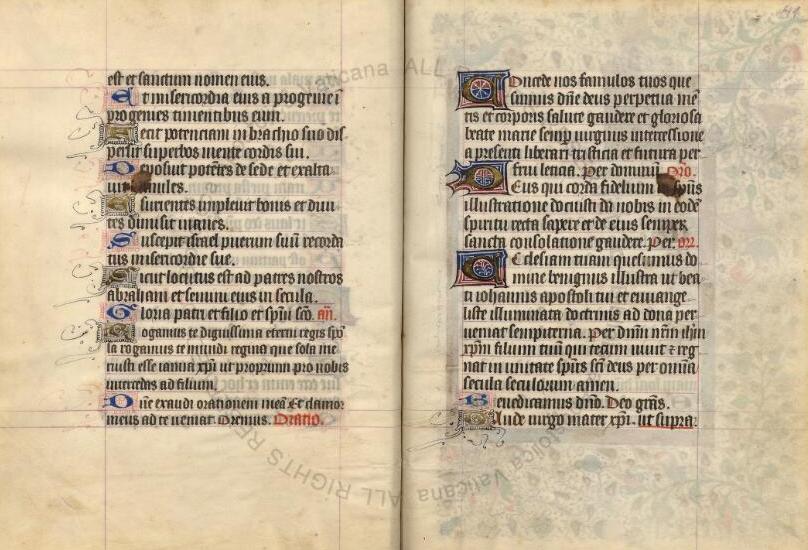 est et sanctum nomen eius.
Et misericordia eius a progenie ī
progenies timentibus eum.
Fecit potenciam in brachio suo dis-
persit superbos mente cordis sui.
Deposuit potētes de sede et exalta-
uit humiles.
Esurientes impleuit bonis et diui-
tes dimisit inanes.
Suscepit israel puerum suū recorda
tus misericordie sue.
Sicut locutus est ad patres nostros
abraham et semini eius in secula.
Gloria patri et filio et spūi scō. añ.
Rogamus te dignissima eterni regis spō
la rogamus te mundi regina que sola me
ruisti esse ianua xp̄i ut pro nobis
intercedas ad filium.
Dñe exaudi orationem meā Et clamor
meus ad te ueniat Oremus. Oratio.
Concede nos famulos tuos que
sumus dñe deus perpetua mē
tis et corporis salute gaudere et gloriosa
beate marie semp̄ uirginis intercessione
a presenti liberari tristicia et futura per
frui leticia. Per dominū. Oro.
Deus qui corda fidelium sp̄ūs
illustratione docuisti da nobis in eodē
spiritu recta sapere et de eius semper
sancta consolatione gaudere. Per. orr.
Ecclesiam tuam quesumus do
mine benignus illustra ut bea
ti iohannis apostoli tui et euuange
liste illuminata doctrinis ad dona per
ueniat sempiterna. Per dn̄m nr̄m ih̄m
xp̄m filium tuū qui tecum uiuit ⁊ reg
nat in unitate sp̄ūs scī deus per omīa
secula seculorum amen.
Benedicamus dnō. Deo grās.
Aude uirgo mater xp̄i. ut supra.